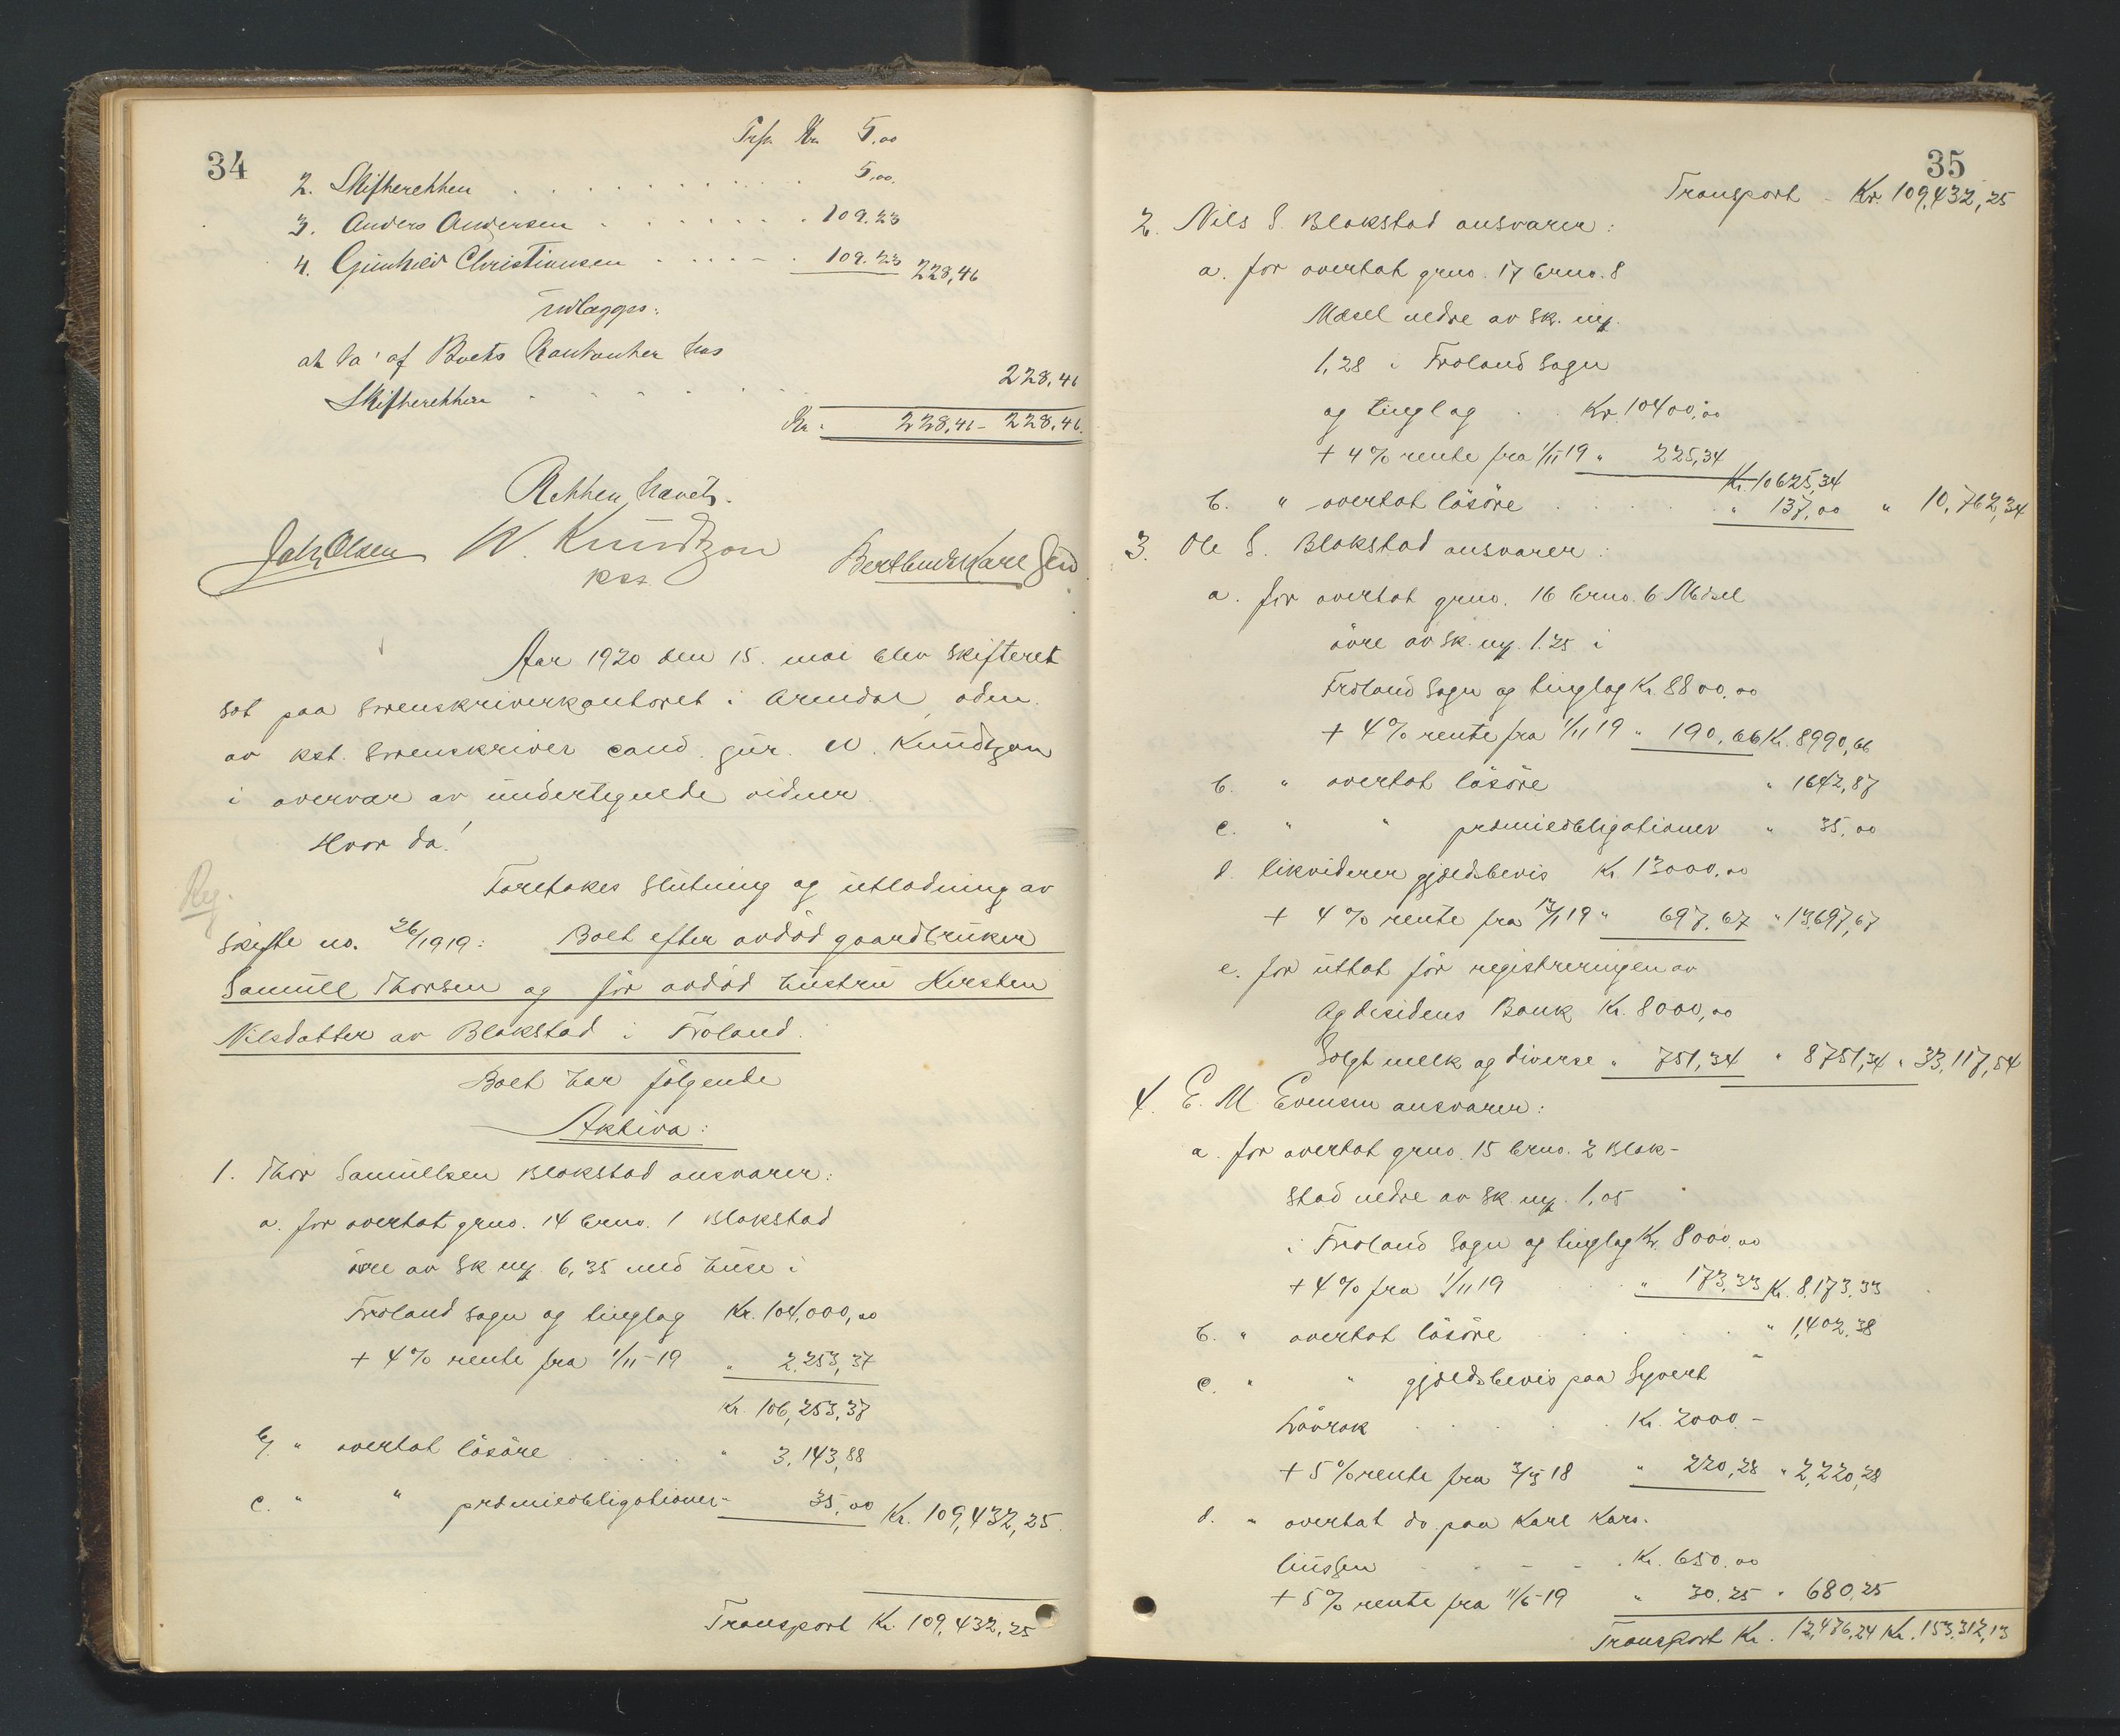 34
Trsp. Kr. 5,00
2. Skifteretten . . . . . . . . . . . . 5,00.
3. Anders Andersen . . . . . . . 109.23
4. Gunhild Christiansen . . . . . 109.23 228,46
Utlægges:
at ta' af Boets Kontanter hos
Skifteretten . . . . . . . 228,46
Kr. 228,46 - 228,46.
Retten hævet.
Joh. Olsen W. Knudtzon
kss.
Aar 1920 den 15. mai blev skifteret
sat paa sorenskriverkontoret i Arendal, adm.
av kst. sorenskriver cand. jur. W. Knudtzon
i overvær av undertegnede vidner.
Hvor da!
Foretokes slutning og utlodning av
Reg.
skifte no. 26/1919: Boet efter avdød gaardbruker
Samuel Thorsen og før avdød hustru Kirsten
Nilsdatter av Blakstad i Froland.
Boet har følgende
Aktiva:
1. Thor Samuelsen Blakstad ansvarer:
a. for overtat grno. 14 brno. 1 Blakstad
øvre av sk. my. 6,35 med huse i
Froland sogn og tinglag Kr. 104,000,00
+ 4 % rente fra 1/11-19 " 2,253,37
Kr. 106,253,37
b. " overtat løsøre . . . . . " 3,143,88
c. " " præmieobligationer - 35,00 Kr. 109,432,25
Transport Kr. 109,432,25
35
Transport - Kr. 109,432,25
2. Nils S. Blakstad ansvarer:
a. for overtat grno. 17 brno. 8
Mæsel nedre av sk. my.
1,28 i Froland sogn
og tinglag . . Kr. 10400,00
+ 4 % rente fra 1/11 19 " 225,34
Kr. 10625,34
b. " overtat løsøre . . . . . . " 137,00 " 10,762,34
3. Ole S. Blakstad ansvarer:
a. for overtat grno. 16 brno. 6 Mæsel
øvre av sk. my. 1.25 i
Froland sogn og tinglag Kr. 8800,00
+ 4 % rente fra 1/11 19 " 190,66 Kr. 8990,66
b. " overtat løsøre " 1642,87
c. " " præmieobligationer " 35,00
d. likviderer gjældsbevis Kr. 13000,00
+ 4 % rente fra 13/1 19 " 697,67 " 13697,67
e. for uttat før registreringen av
Agdesidens Bank Kr. 8000,00
Solgt melk og diverse " 751,34 " 8751,34 " 33,117,54
4. E. M. Evensen ansvarer:
a. for overtat grno. 15 brno. 2 Blak-
stad nedre av sk. my. 1,05
i Froland sogn og tinglag Kr. 8000,00
+ 4 % fra 1/11 19 . . " 173,33 Kr. 8,173,33
b. " overtat løsøre . . . . . " 1,402,38
c. " " gjældsbevis paa Syvert
Løvrak . . . . . Kr. 2000 -
+ 5 % rente fra 3/3 18 " 220,28 " 2,220,28
d. " overtat do. paa Karl Karo-
liussen - - - . Kr. 650.00
+ 5 % rente fra 11/6-19 " 30,25 " 680,25
Transport Kr. 12,476,24 Kr. 153,312,13